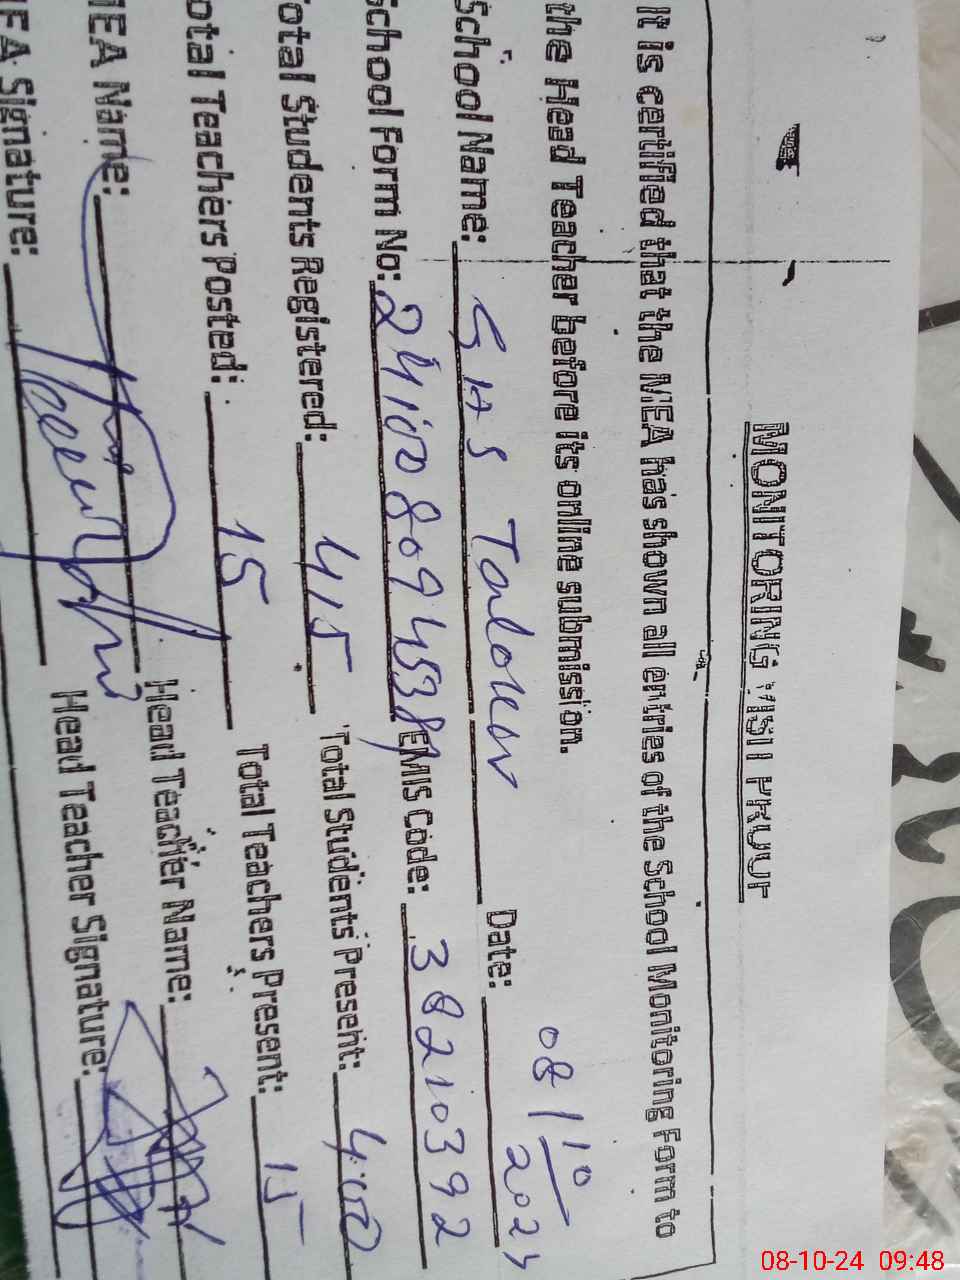 MONITORING VISIT PROOF
It is certified that the MEA has shown all entries of the School Monitoring Form to
the Head Teacher before its online submission.
School Name: GHS Date: 08/10/2024
School Form No: EMIS Code: 38210392
Total Students Registered: 415 Total Students Present: 400
Total Teachers Posted: 15 Total Teachers Present: 15
MEA Name: Head Teacher Name:
MEA Signature: Head Teacher Signature:
08-10-24 09:48